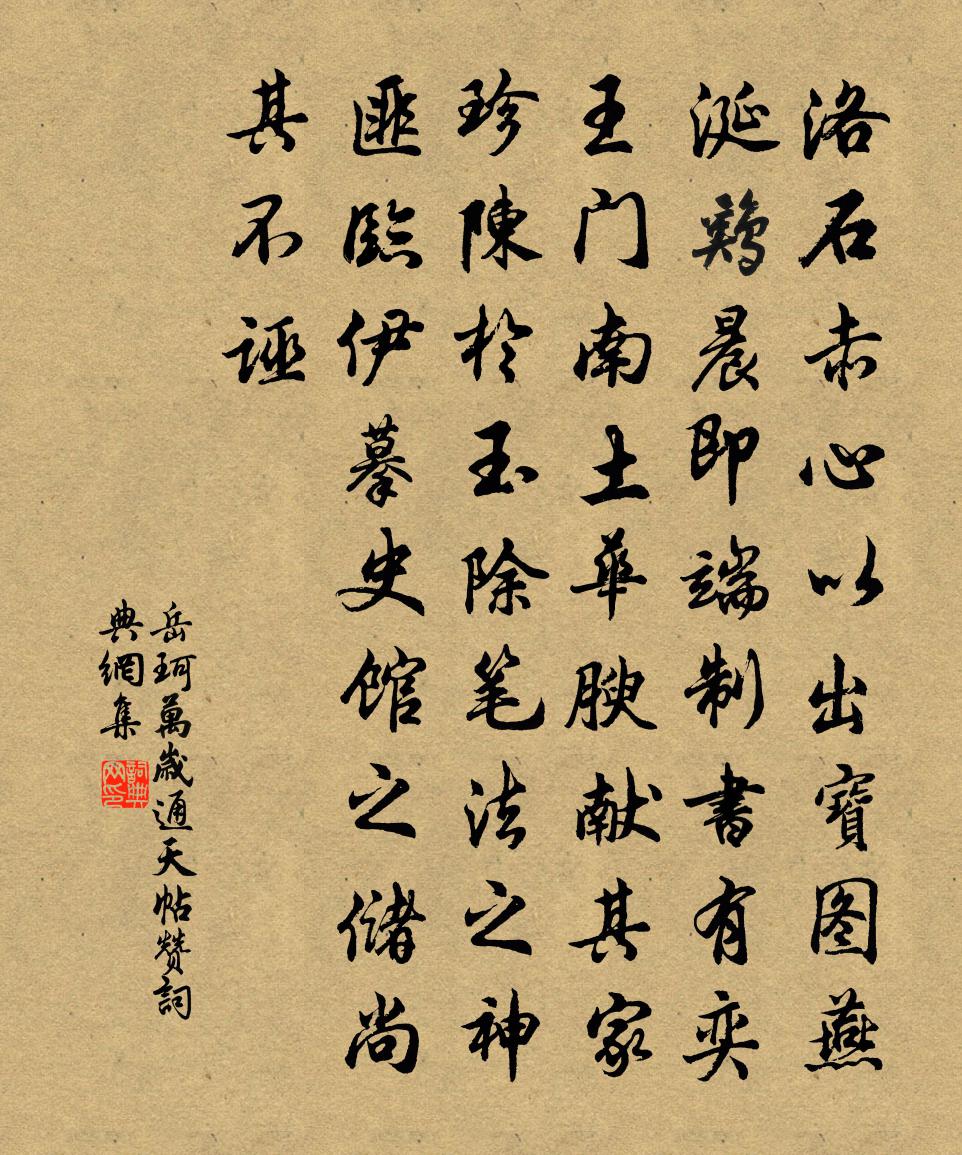 洛石赤心以出寶图燕
涎鷄晨即端制書有奕
王门南土華腴献其家
珍陳於玉除笔法之神
匪臨伊摹史館之儲尚
其不誣
岳珂萬歲通天帖赞詞
典網集
詞典網印